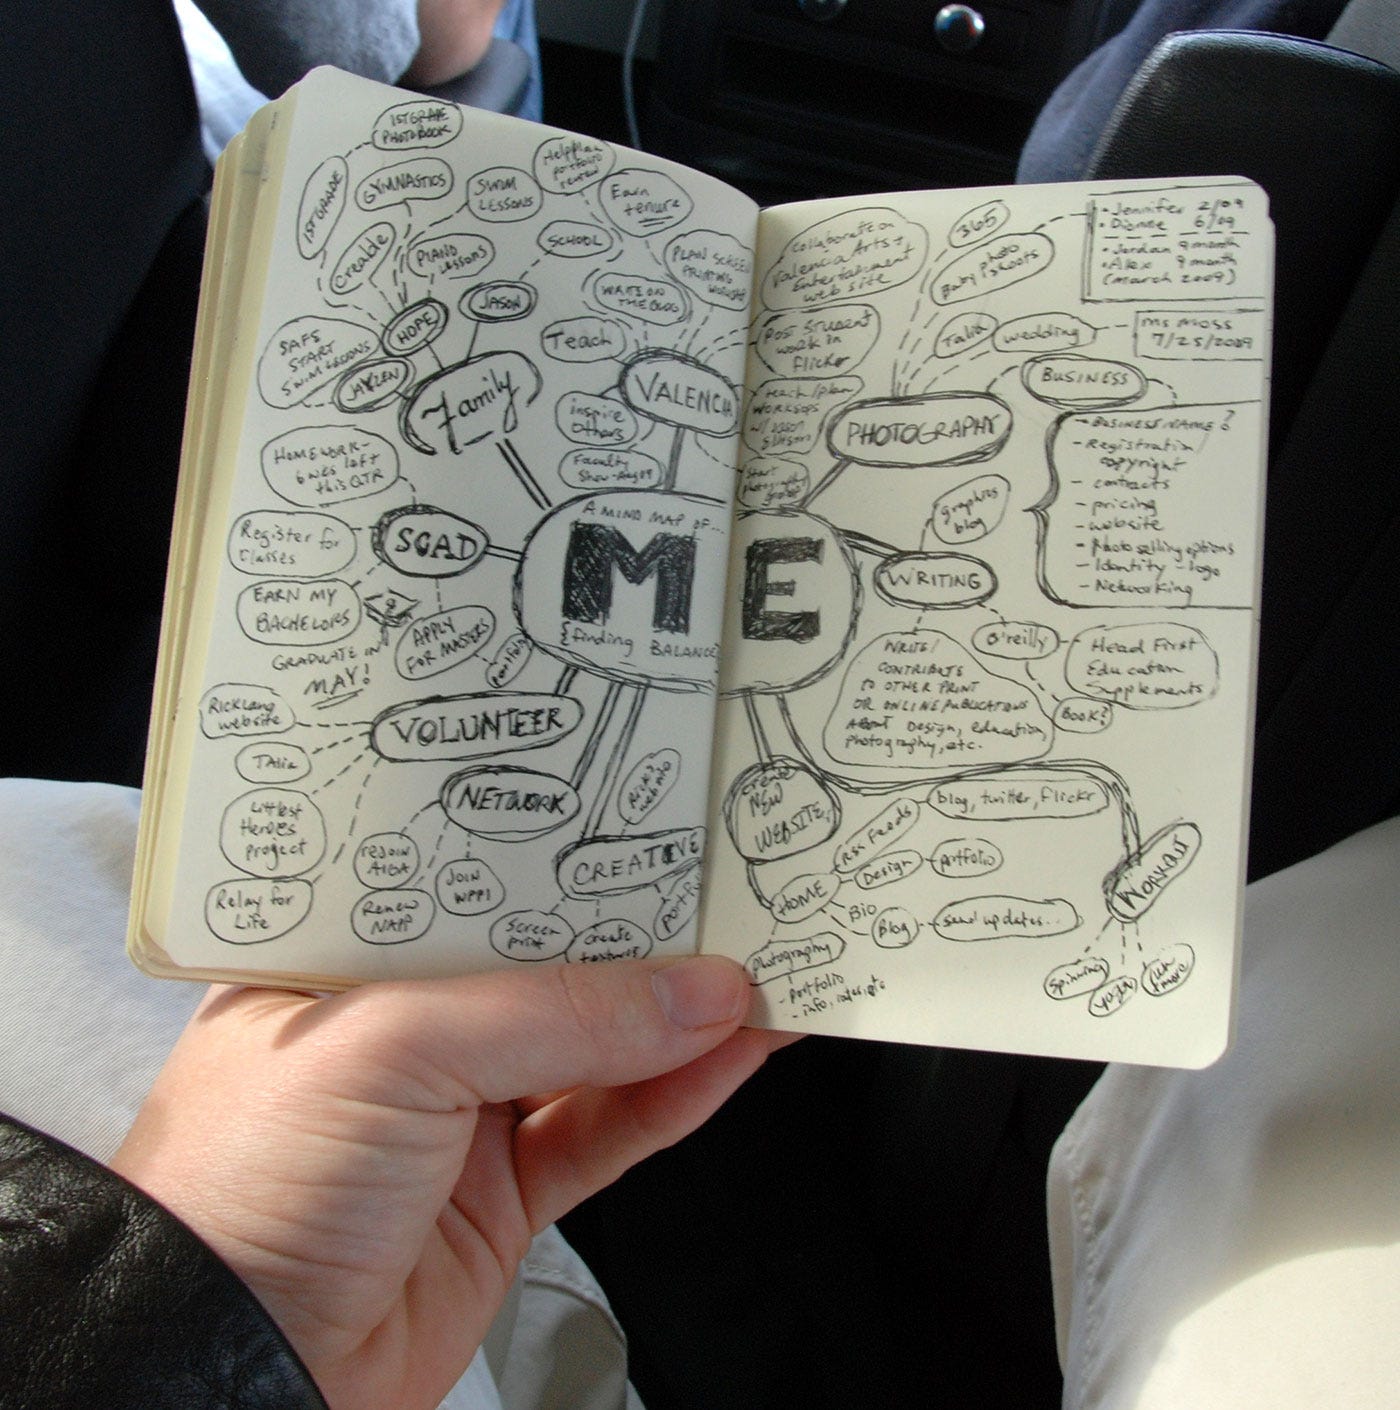 1ST GRADE
PHOTOBOOK
1ST GRADE
GYMNASTICS
SWIM
LESSONS
PIANO
LESSONS
HOPE
JASON
SCHOOL
START
SWIM LESSONS
JAYLEN
Family
Help plan
portfolio
review
Earn
tenure
PLAN SCREEN
PRINTING
WORKSHOP
WRITE ON
THE BLOG
Teach
VALENCIA
inspire
others
Faculty
Show - Aug 09
HOMEWORK -
6 wks left
this QTR
Register for
Classes
SCAD
EARN MY
BACHELORS
GRADUATE IN
MAY!
APPLY
FOR MASTERS
portfolio
A MIND MAP OF...
ME
{finding BALANCE}
Rick Lang
website
VOLUNTEER
Talia
Littlest
Heroes
project
Relay for
Life
NETWORK
rejoin
AIGA
Renew
NAPP
JOIN
WPPI
CREATIVE
Screen
print
create
textures
Collaborate on
Valencia Arts +
Entertainment
web site
Post student
work in
flickr
teach/plan
workshops
w/ Jason
Start
photography
365
Baby photo
shoots
• Jennifer 2/09
• Dionne 6/09
• Jordan 9 month
• Alex 9 month
(march 2009)
Talia
wedding
ms moss
7/25/2009
PHOTOGRAPHY
BUSINESS
- BUSINESS NAME?
- Registration
copyright
- contracts
- pricing
- website
- Photo selling options
- Identity - logo
- Networking
graphics
blog
WRITING
O'reilly
Head First
Education
Supplements
BOOK?
WRITE/
CONTRIBUTE
TO OTHER PRINT
OR ONLINE PUBLICATIONS
ABOUT Design, education,
photography, etc.
Create
NEW
WEBSITE,
RSS Feeds
blog, twitter, flickr
Design
portfolio
HOME
Bio
Blog
send updates..
photography
- portfolio
- info, rates, etc
Workout
Spinning
yoga